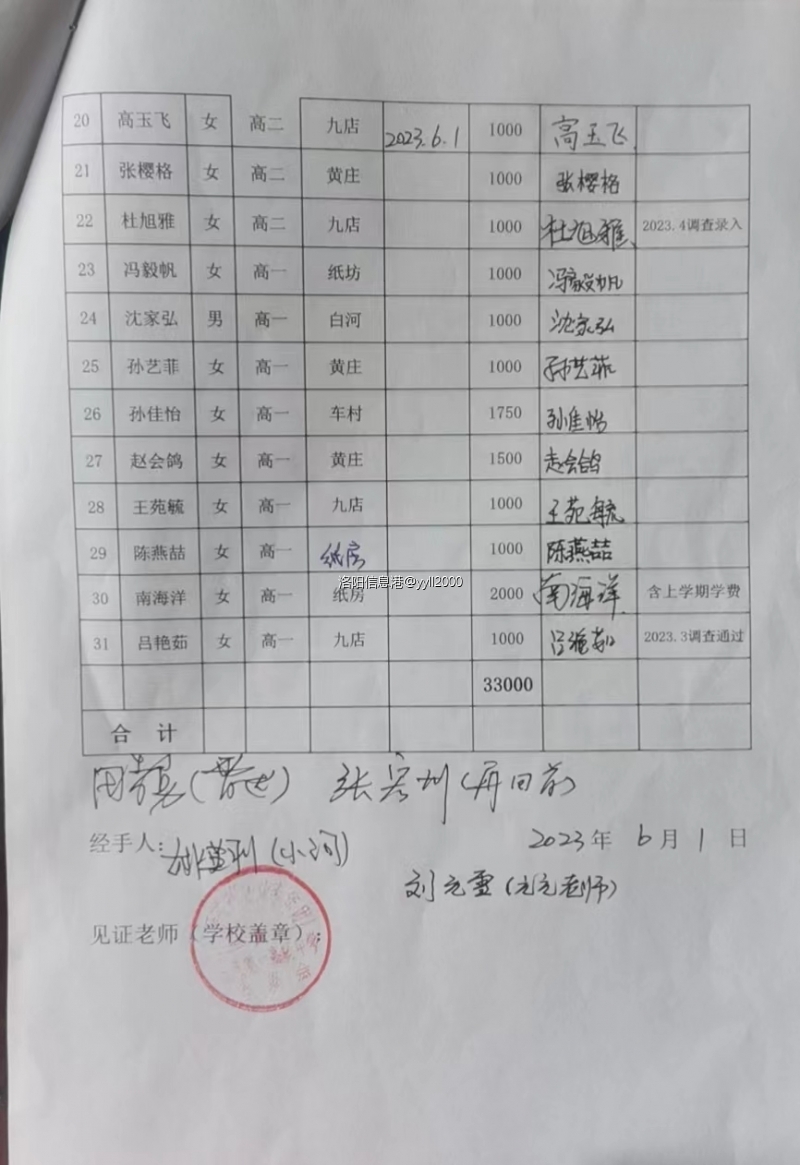 20 高玉飞 女 高二 九店 2023.6.1 1000 高玉飞
21 张樱格 女 高二 黄庄 1000 张樱格
22 杜旭雅 女 高二 九店 1000 杜旭雅 2023.4调查录入
23 冯毅帆 女 高一 纸坊 1000 冯毅帆
24 沈家弘 男 高一 白河 1000 沈家弘
25 孙艺菲 女 高一 黄庄 1000 孙艺菲
26 孙佳怡 女 高一 车村 1750 孙佳怡
27 赵会鸽 女 高一 黄庄 1500 赵会鸽
28 王苑毓 女 高一 九店 1000 王苑毓
29 陈燕喆 女 高一 纸房 1000 陈燕喆
洛阳信息港@yyll2000
30 南海洋 女 高一 纸房 2000 南海洋 含上学期学费
31 吕艳茹 女 高一 九店 1000 吕艳茹 2023.3调查通过
33000
合 计
张宏州
经手人: (小河) 2023年 6月1日
刘元雪(元元老师)
见证老师(学校盖章):